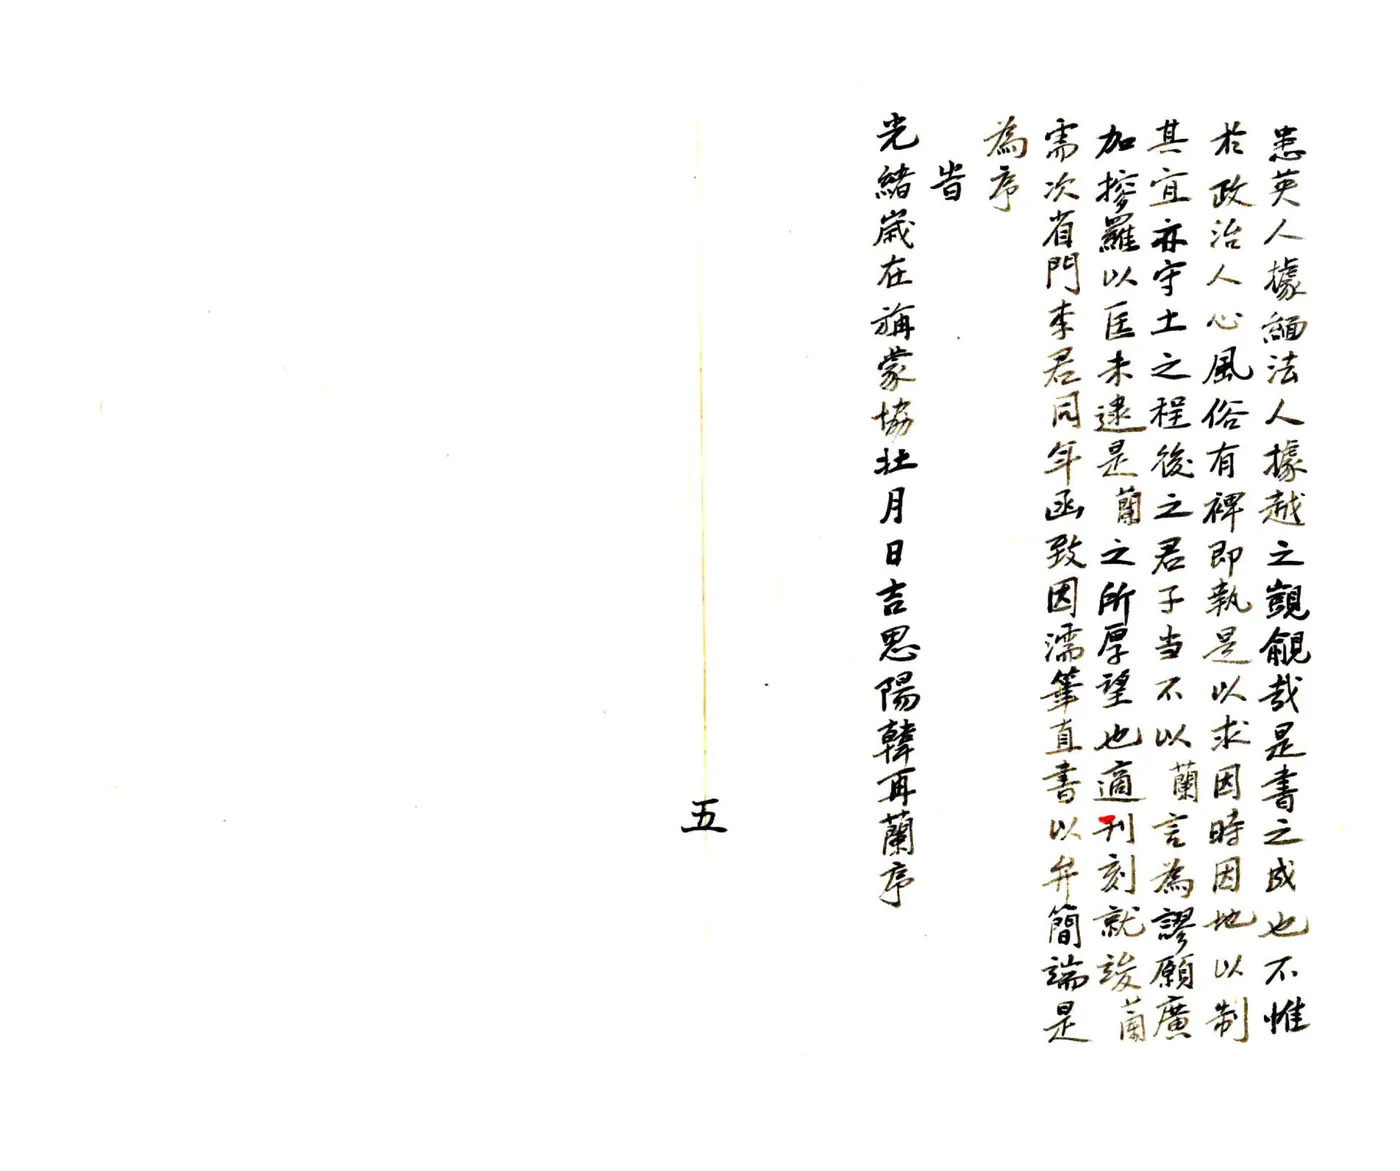 患英人據緬法人據越之覬覦哉是書之成也不惟
於政治人心風俗有裨即執是以求因時因地以制
其宜亦守土之程後之君子当不以蘭言為謬願廣
加摉羅以匡未逮是蘭之所厚望也適刊刻就竣蘭
需次省門李君同年函致因濡筆直書以弁簡端是
為序
旹
光緒歲在旃蒙協壯月日吉思陽韓再蘭序
五